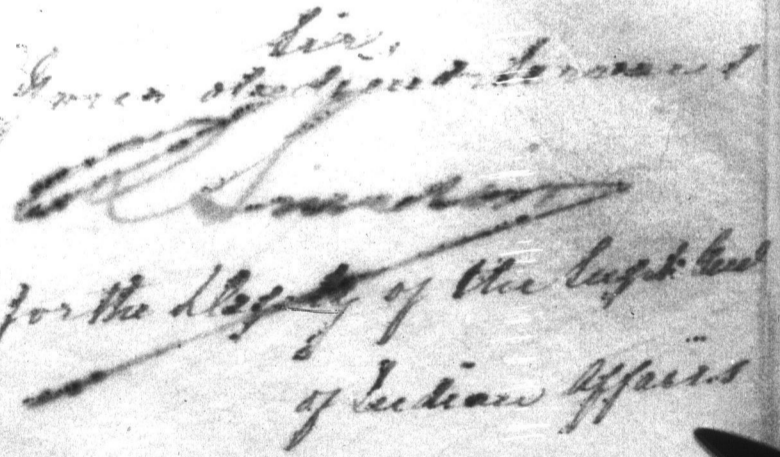 Sir,
Your obedient Servant
R Sinclair
for the Deputy of the Supt. Genl
of Indian Affairs